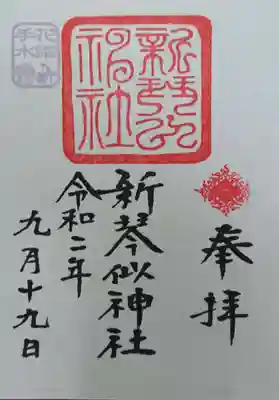 奉拝
新琴似神社
令和二年
九月十九日
新琴似
神社
花詣
手水